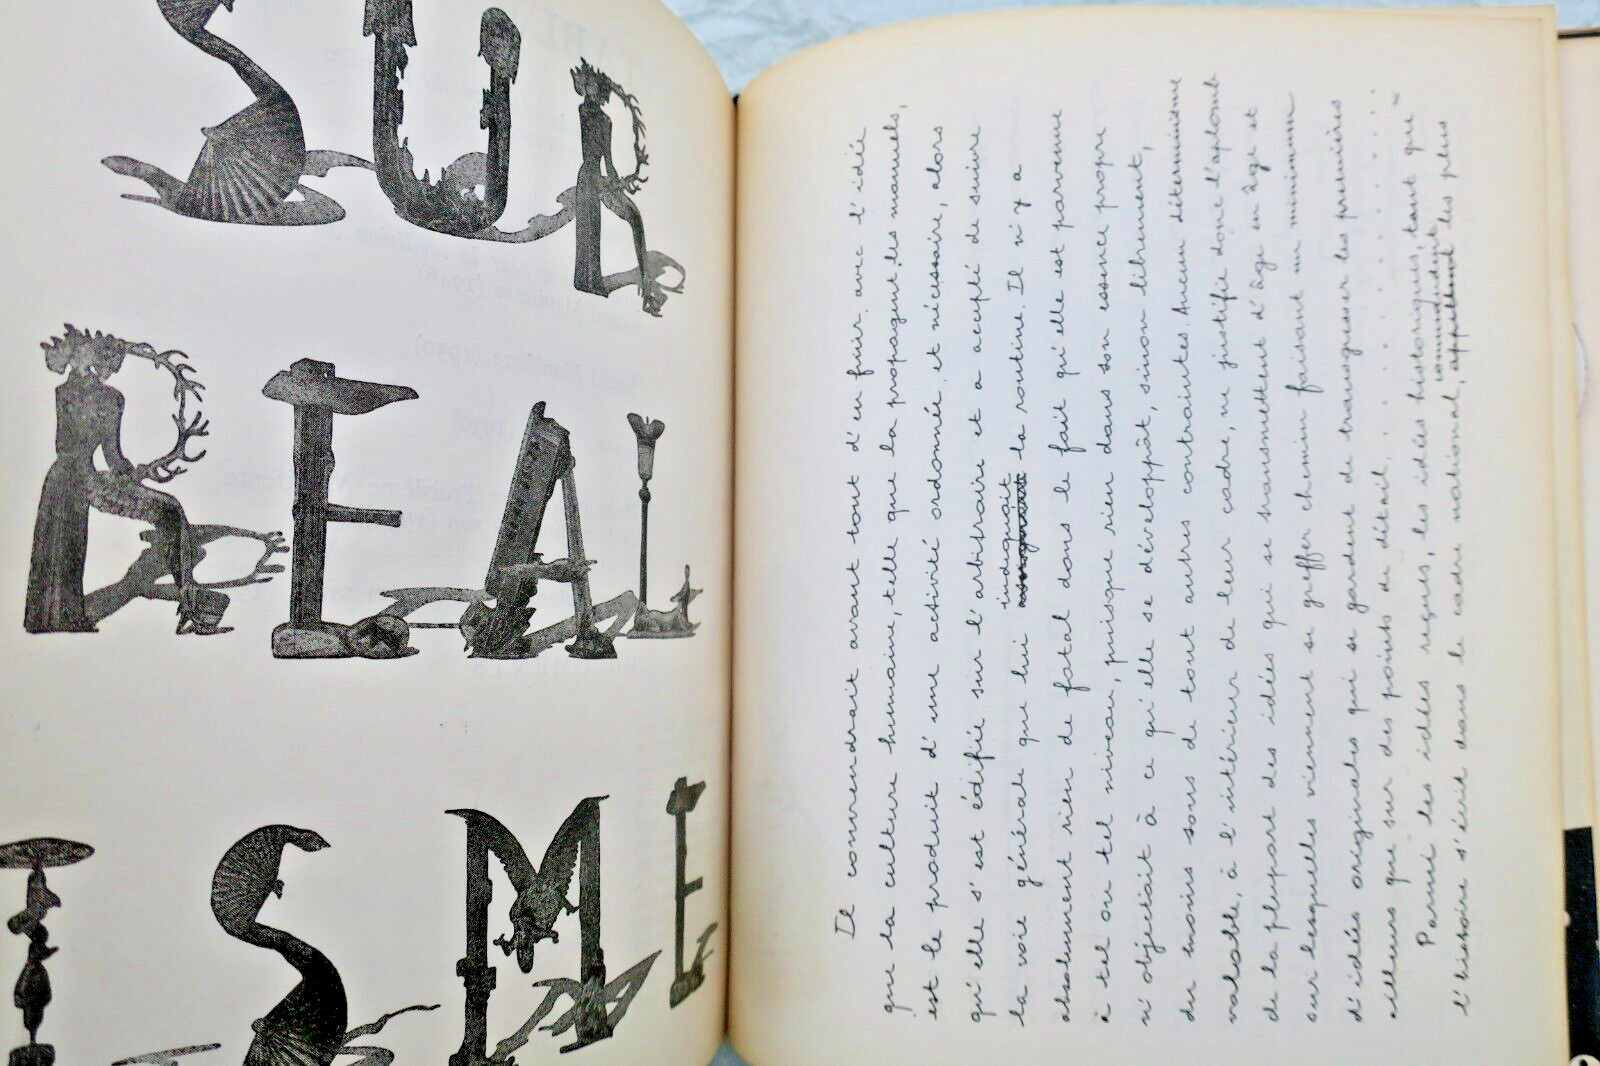 SUR
REAL
ISME
Il conviendrait avant tout d'en finir avec l'idée
que la culture humaine, telle que la propagent les manuels,
est le produit d'une activité ordonnée et nécessaire, alors
qu'elle s'est édifiée sur l'arbitraire et a accepté de suivre
indiquait
la voie générale que lui la routine. Il n'y a
absolument rien de fatal dans le fait qu'elle est parvenue
à tel ou tel niveau, puisque rien dans son essence propre
n'objectait à ce qu'elle se développât, sinon librement,
du moins sous de tout autres contraintes. Aucun déterminisme
valable, à l'intérieur de leur cadre, ne justifie donc l'aplomb
de la plupart des idées qui se transmettent d'âge en âge et
sur lesquelles viennent se greffer chemin faisant un minimum
d'idées originales qui se gardent de transgresser les premières
ailleurs que sur des points de détail. . . . . . . . . . . . . . .
Parmi les idées reçues, les idées historiques, tant que
commandent
l'histoire s'écrit dans le cadre national, appellent les plus